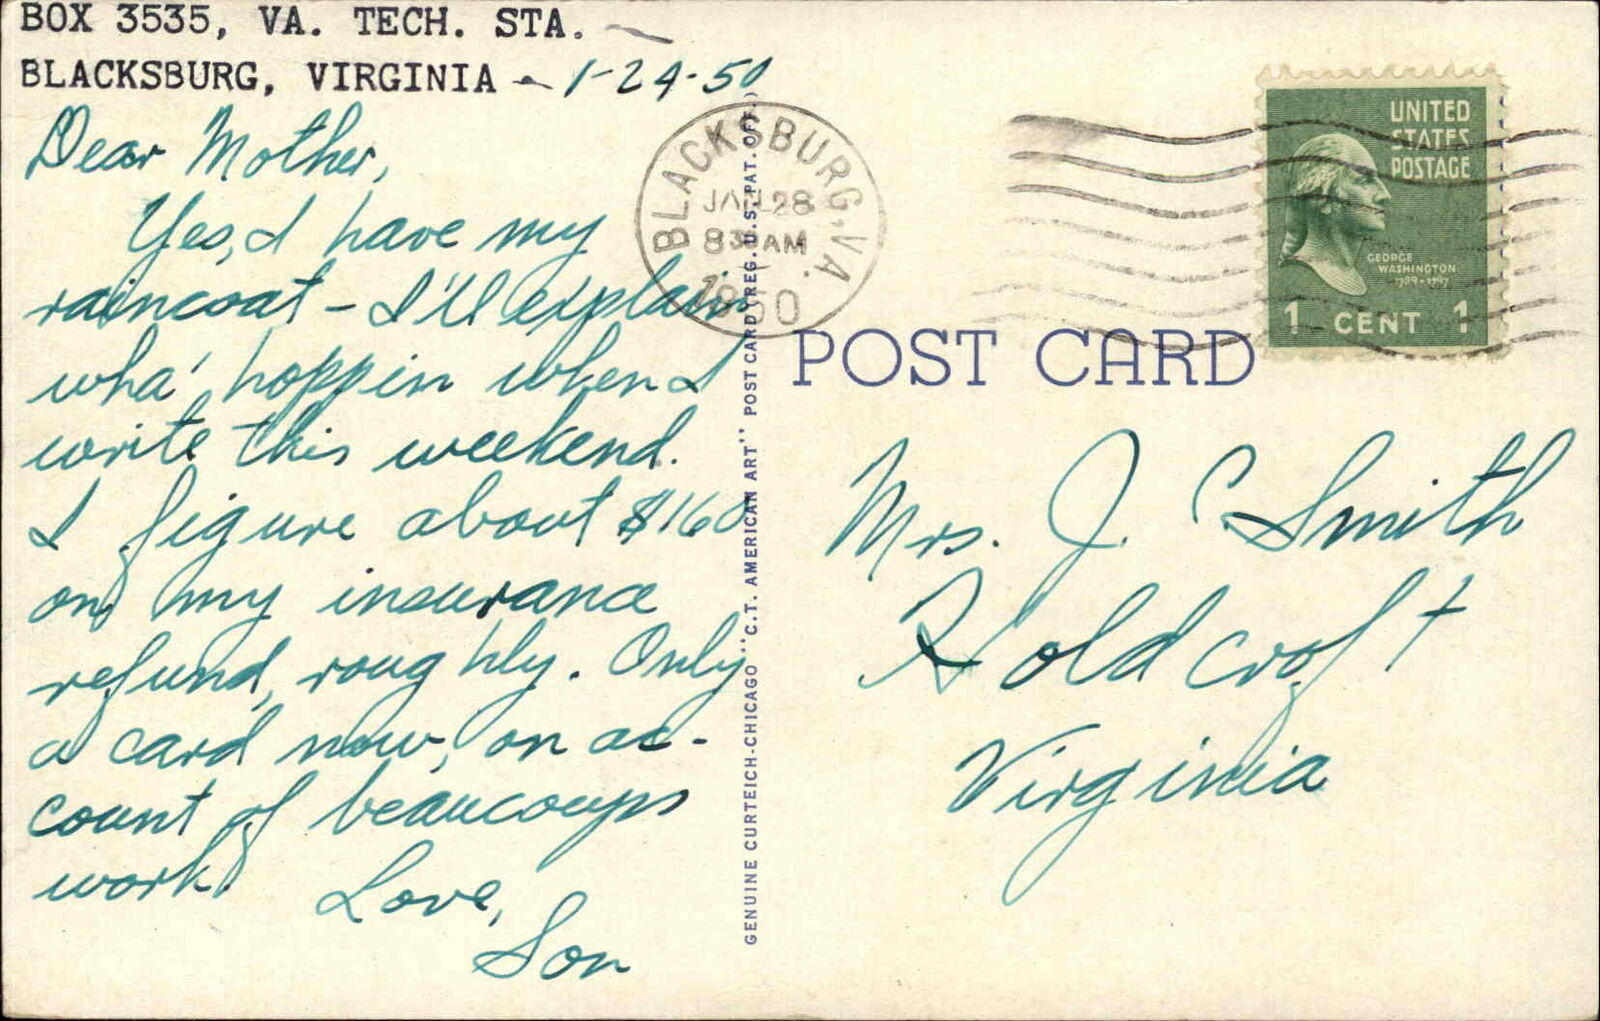 BOX 3535, VA. TECH. STA.
BLACKSBURG, VIRGINIA - 1-24-50
Dear Mother,
Yes, I have my
raincoat - I'll explain
wha' hoppin when I
write this weekend.
I figure about $160
on my insurance
refund, roughly. Only
a card now, on ac-
count of beaucoups
work.
Love,
Son
BLACKSBURG, VA.
JAN 28
8 30 AM
1950
GENUINE CURTEICH-CHICAGO "C.T. AMERICAN ART" POST CARD (REG. U.S. PAT. OFF.)
UNITED
STATES
POSTAGE
GEORGE
WASHINGTON
1789-1797
1 CENT 1
POST CARD
Mrs. J. C. Smith
Holdcroft
Virginia